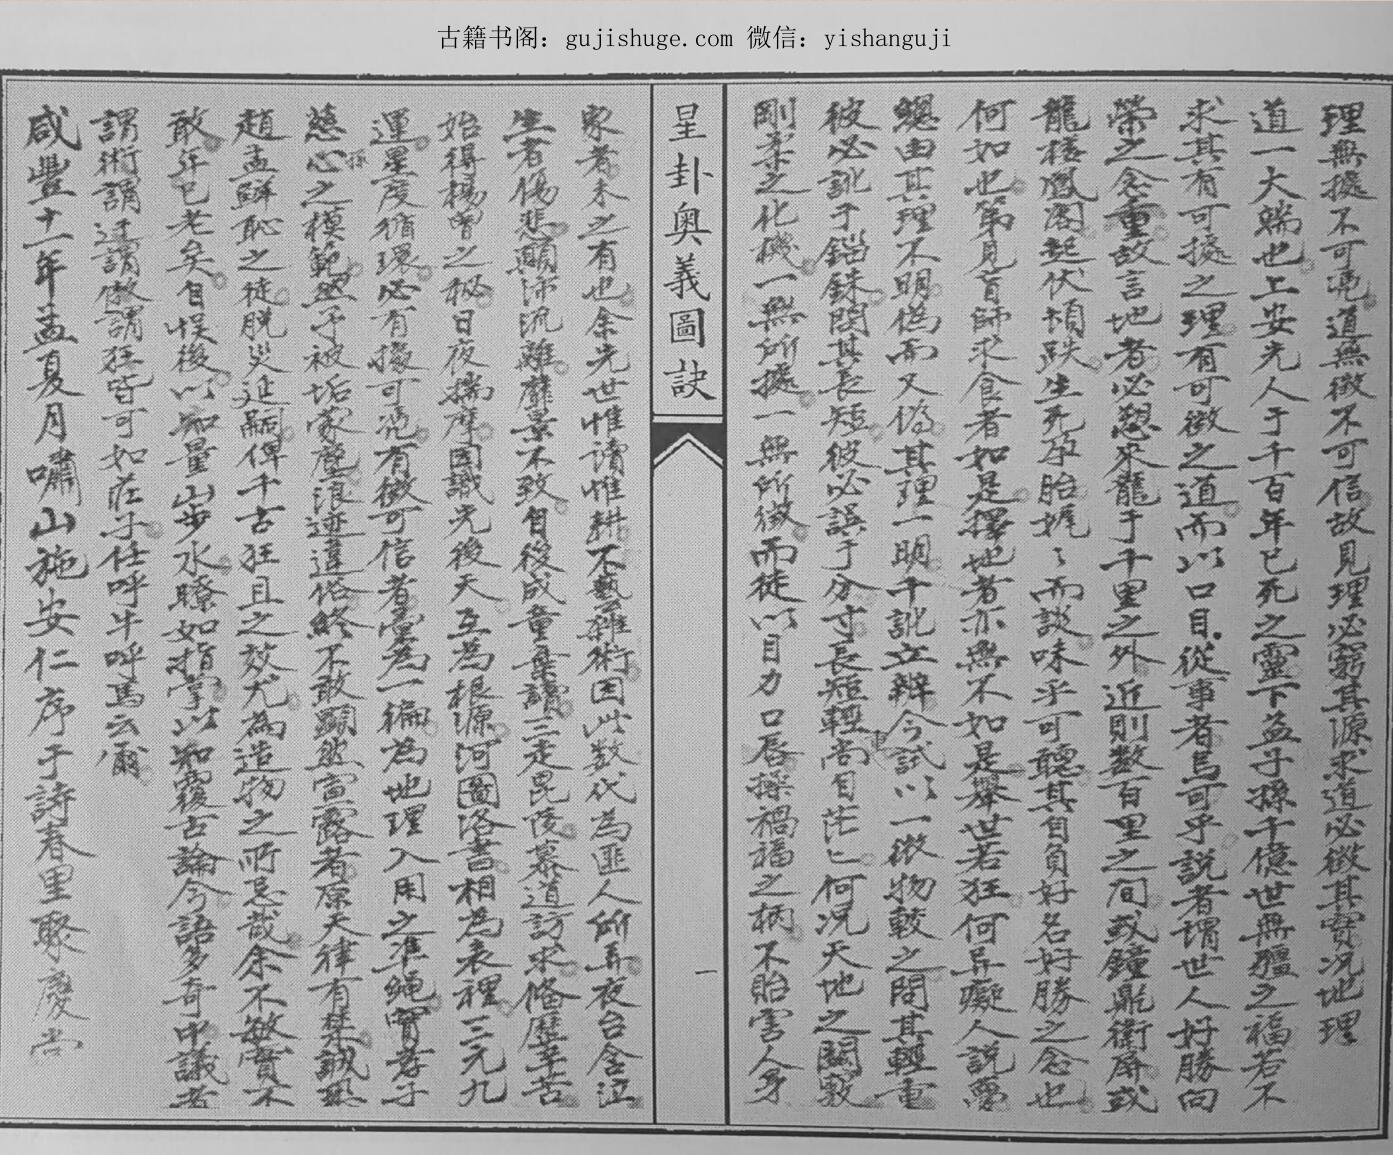 古籍书阁：gujishuge.com 微信：yishanguji
理無據不可憑道無徵不可信故見理必窮其源求道必徵其實况地理
道一大端也上安先人于千百年已死之靈下益子孫千億世無疆之福若不
求其有可據之理有可徵之道而以口目從事者烏可乎説者謂世人好勝向
榮之念重故言地者必懇來龍于千里之外近則数百里之间或鐘鼎衛屏或
龍楼鳳阁起伏頓跌生死孕胎娓〻而談味乎可聽其自負好名好勝之念也
何如也第見盲師求食者如是擇地者亦無不如是舉世若狂何异癡人説夢
總由其理不明僞而又僞其理一明千訛立辨今試以一微物較之問其輕重
彼必訛于錙銖問其長短彼必誤于分寸長短輕重尚自茫〻何况天地之闔闢
剛柔之化機一無所據一無所徵而徒以目力口唇操禍福之柄不貽害人身
星卦奥義圖訣
一
家者未之有也余先世惟讀惟耕不藝雜術因此数代為匪人所弄夜台含泣
生者傷悲顛沛流離靡景不致自後成童棄讀三走毘陵慕道訪求俻歷辛苦
始得楊曾之秘日夜揣摩因識先後天互為根源河圖洛書相為表裡三元九
運星度循環必有據可憑有徵可信者彙為一編為地理入用之準繩實孝子
慈孫心之模範然予被垢蒙塵浪迹違俗終不敢顯然宣露者原天律有禁誠恐
趙孟鮮恥之徒脱災延嗣俾千古狂且之效尤為造物之所忌哉余不敏實不
敢年已老矣自悮後以知量山步水瞭如指掌以知覆古論今語多奇中議者
謂術謂迂謂傲謂狂皆可如荘子任呼牛呼馬云爾
咸豐十一年孟夏月嘯山施安仁序于詩春里聚慶堂